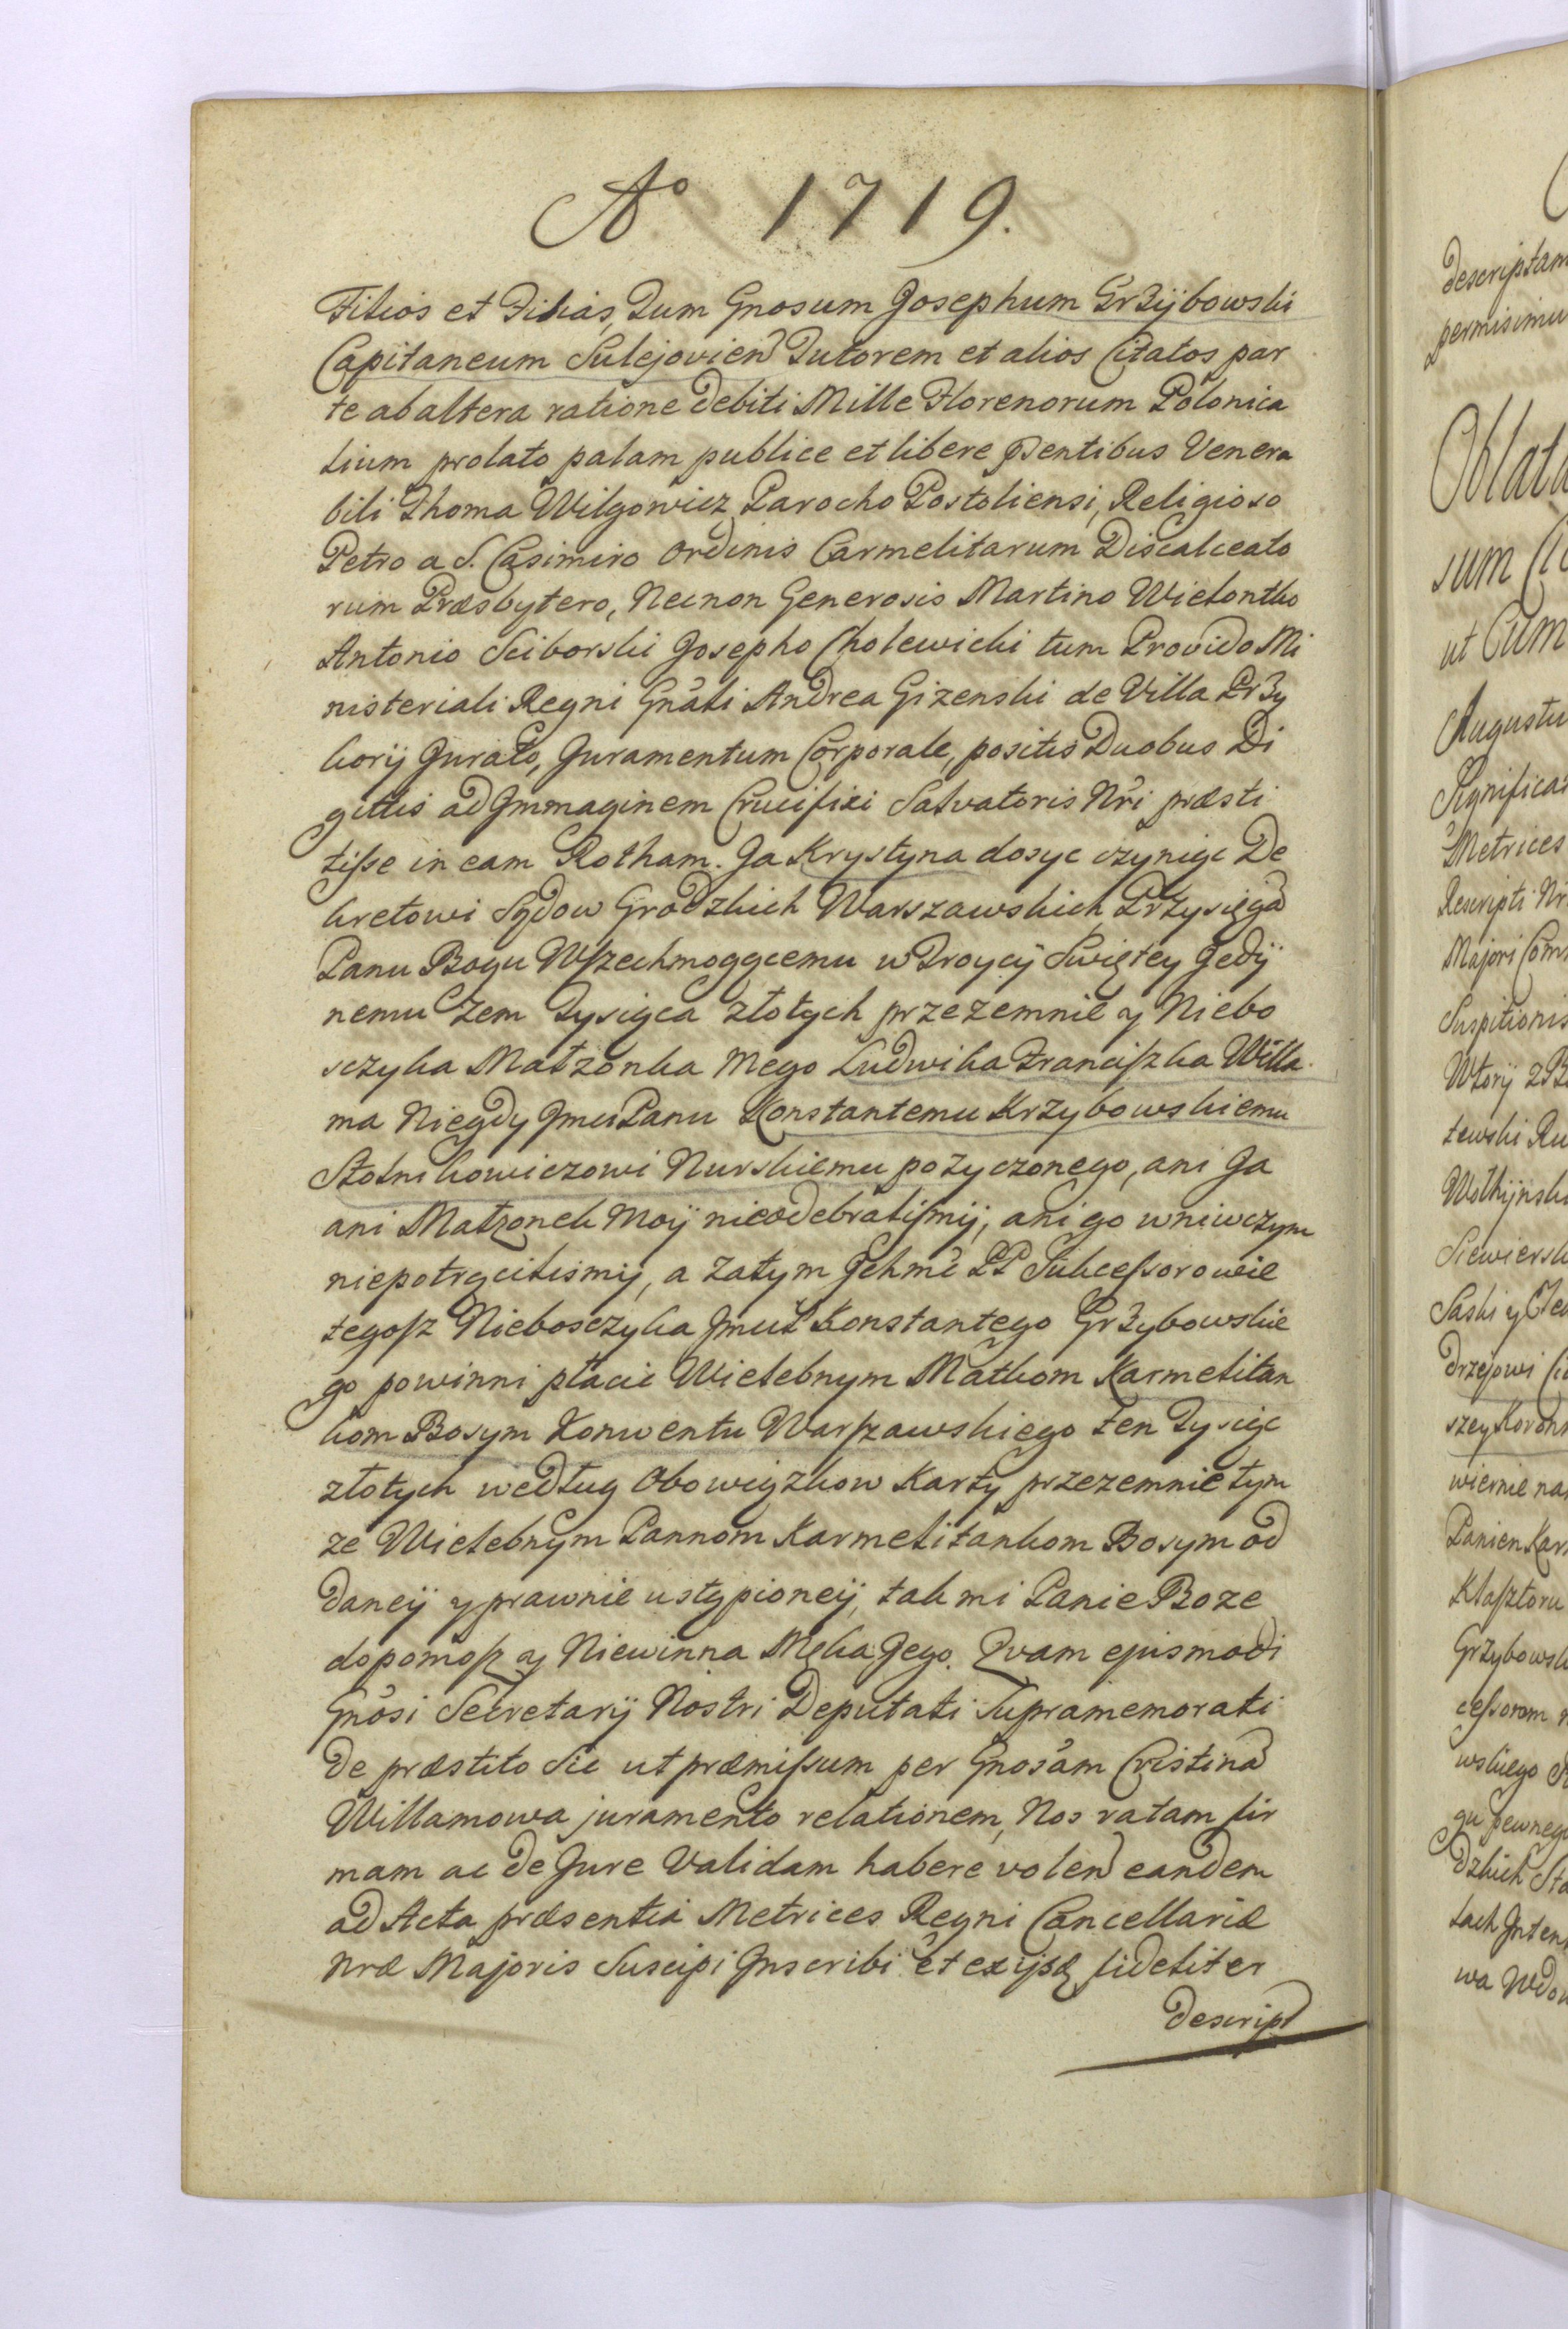 Aº 1719.
Filios et Filias, Tum Gnosum Josephum Grzÿbowski
Capitaneum Sulejovien Tutorem et alios Citatos par
te ab altera ratione debiti Mille Florenorum Polonica
lium prolato palam publice et libere pntibus Venera
bili Thoma Wilgowicz Parocho Postoliensi, Religioso
Petro a S. Casimiro Ordinis Carmelitarum Discalceato
rum Præsbytero, Necnon Generosis Martino Wielontko
Antonio Sciborski Josepho Cholewicki tum Provido Mi
nisteriali Regni Gnali Andrea Gizenski de Villa Przy
korÿ Jurato, Juramentum Corporale, positis Duobus Di
gittis ad Jmmaginem Crucifixi Salvatoris Nri præsti
tisse in eam Rotham. Ja Krystyna dosyc czyniąc De
kretowi Sądow Grodzkich Warszawskich Przysięgā
Panu Bogu Wszechmogącemu w Troycÿ Swiętey Jedÿ
nemu Zem Tysiąca złotych przezemnie y Niebo
sczyka Małzonka Mego Ludwika Franciszka Willa
ma Niegdy Jmci Panu Konstantemu Krzybowskiemu
Stolnikowiczowi Nurskiemu pozyczonego, ani Ja
ani Małzonek Moÿ nieodebralismÿ, ani go wniwczym
niepotrącilismÿ, a Zatym Jchmć PP Sukcessorowie
tegosz Nieboszczyka Jmci Konstantego Grzybowskie
go powinni płacic Wielebnym Matkom Karmelitan
kom Bosym Konwentu Warszawskiego ten Tysiąc
złotych według Obowiązkow Karty przezemnie tym
ze Wielebnym Pannom Karmelitankom Bosym od
daneÿ y prawnie ustąpioneÿ, tak mi Panie Boze
dopomosz y Niewinna Męka Jego. Qvam ejusmodi
Gnosi Secretarÿ Nostri Deputati Supramemorati
de præstito Sic ut præmissum per Gnosam Cristinā
Willamowa juramento relationem, Nos ratam fir
mam ac de Jure Validam habere volen eandem
ad Acta præsentia Metrices Regni Cancellariæ
Nræ Majoris Suscipi Jnscribi et ex ijsq fideliter
descript
descriptam
permisimu
Oblata
sum
ut Cum
Augustu
Significa
Metrices
Rescripti Nr
Majori Com
Suspitionis
Wtorÿ z B
tewski Ru
Wołhÿnsk
Siewiersk
Saski y
drzejowi
szey Koronn
wiernie na
Panien Kar
Klasztoru
Grzybowsk
cessorom
wskiego
gu pewneg
dzkich Sta
tach Jnten
wa Wdow